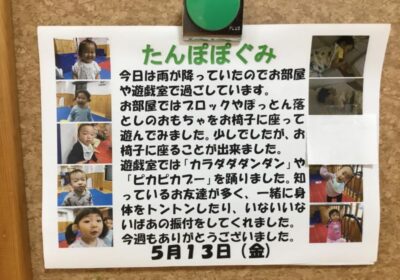 PLUS
たんぽぽぐみ
今日は雨が降っていたのでお部屋
や遊戯室で過ごしています。
お部屋ではブロックやぽっとん落
としのおもちゃをお椅子に座って
遊んでみました。少しでしたが、お
椅子に座ることが出来ました。
遊戯室では「カラダダダンダン」や
「ピカピカブー」を踊りました。知
っているお友達が多く、一緒に身
体をトントンしたり、いないいな
いばあの振付をしてくれました。
今週もありがとうございました。
5月13日（金）